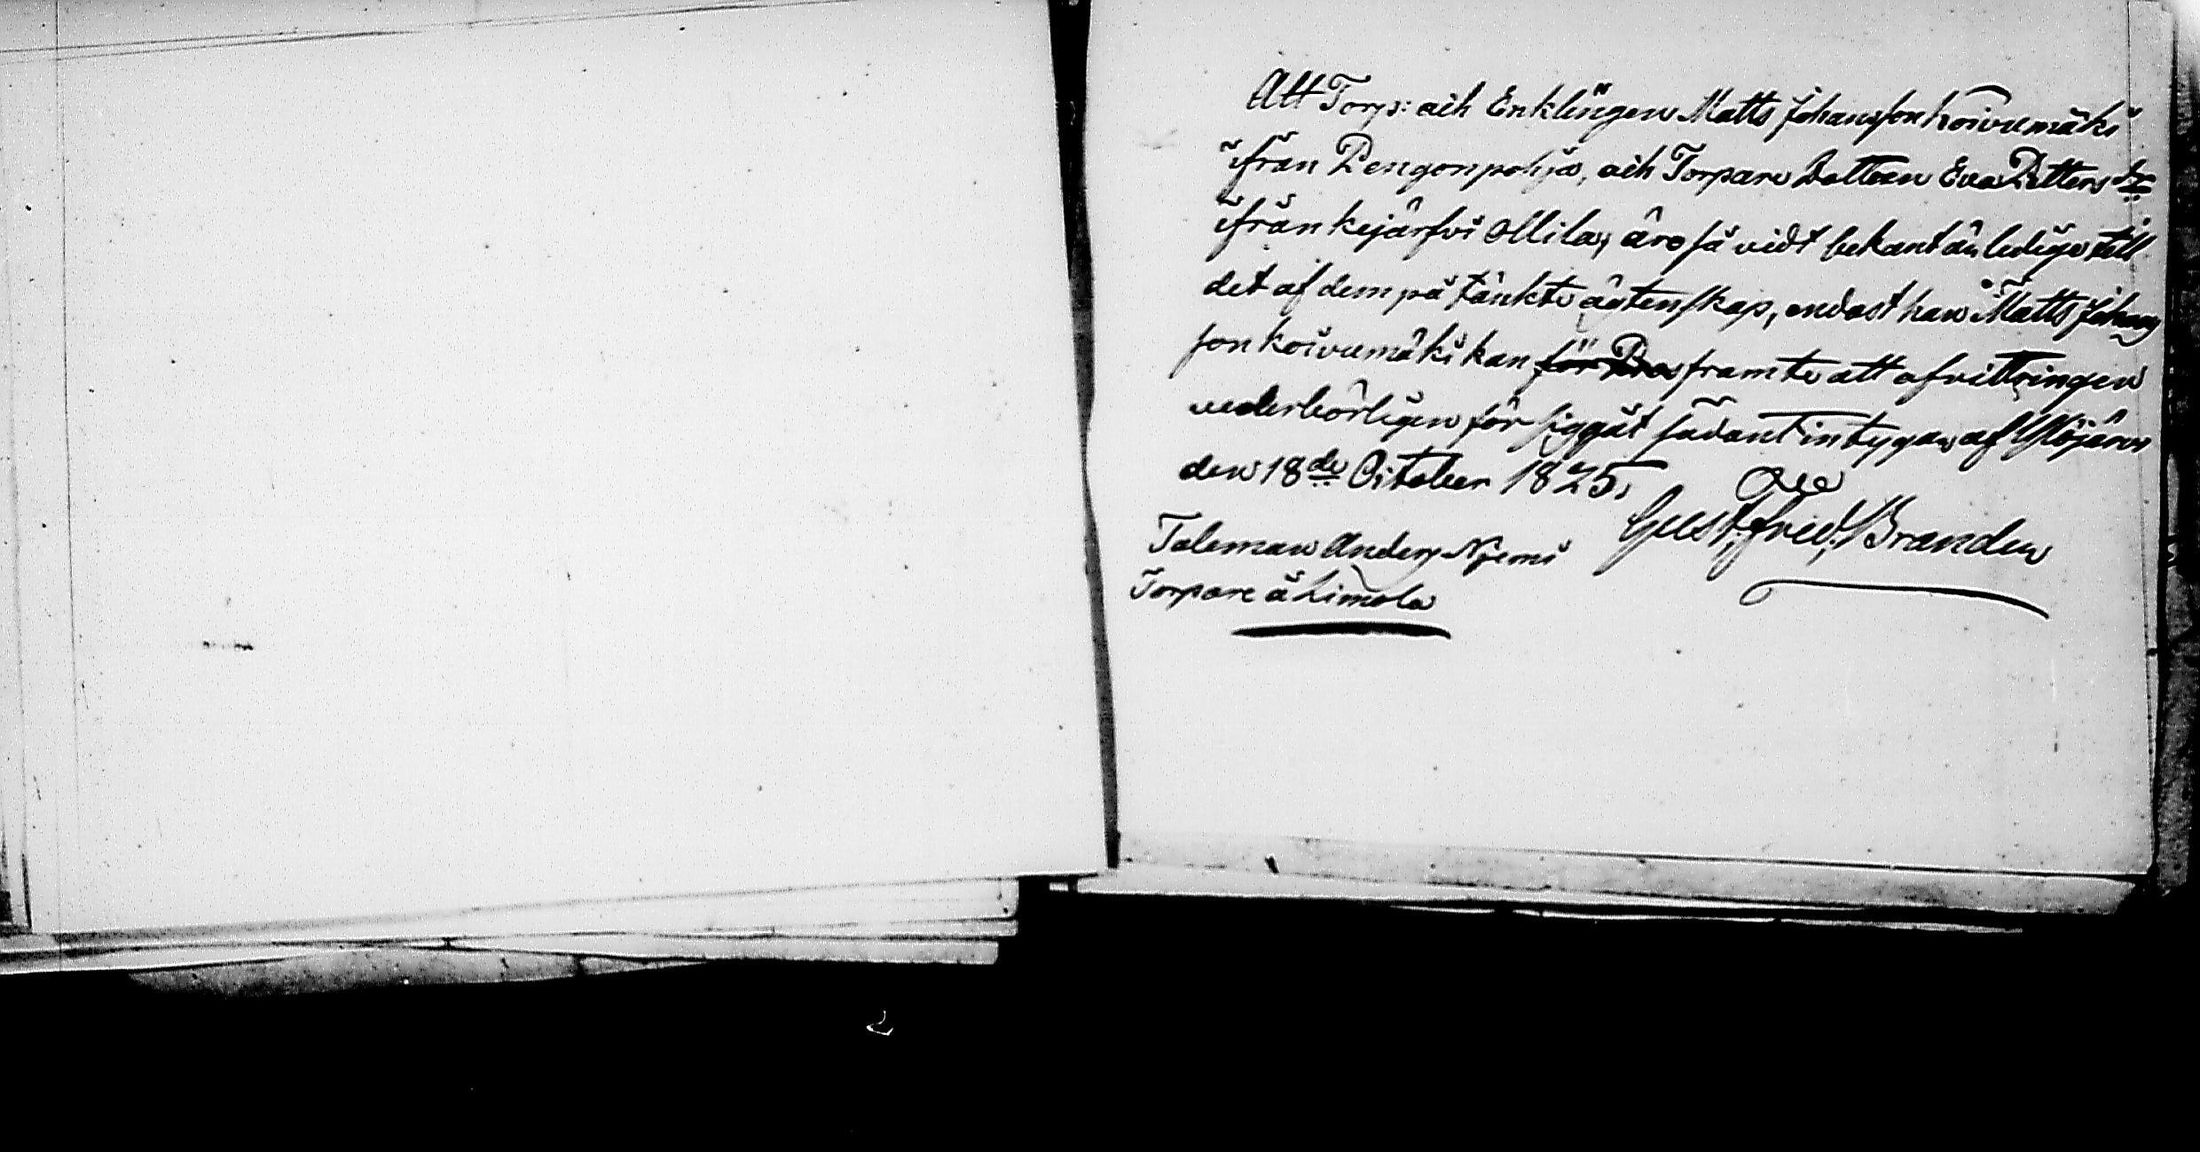 Att Torp: och Enklingen Matts Johansson Koivumäki
ifrån Pengonpohja, och Torpare Dottren Eva Petters dr
ifrån Kejärfvi Ollila, äro så vidt bekant är ledige till
det af dem på tänkte ägtenskap, endast han Matts Johans
son Koivumäki kan för Pros framte att afvittringen
vederbörligen för siggåt sådant intygas af Ylöjärvi
den 18de October 1825.
Gust. Fred. Brander
Taleman Anders Njemi
Torpare å Limola